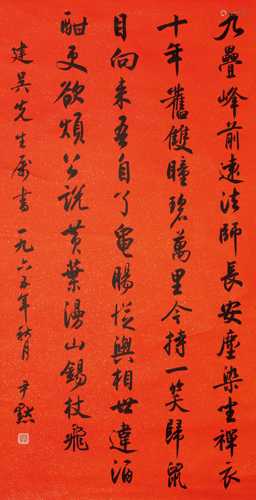 九疊峰前遠法師長安塵染坐禪衣
十年舊雙瞳碧萬里今持一笑歸鼠
目向來吾自了龜腸從與相世違酒
酣更欲煩公說黃葉漫山錫杖飛
建吳先生屬書一九六五年秋月尹默